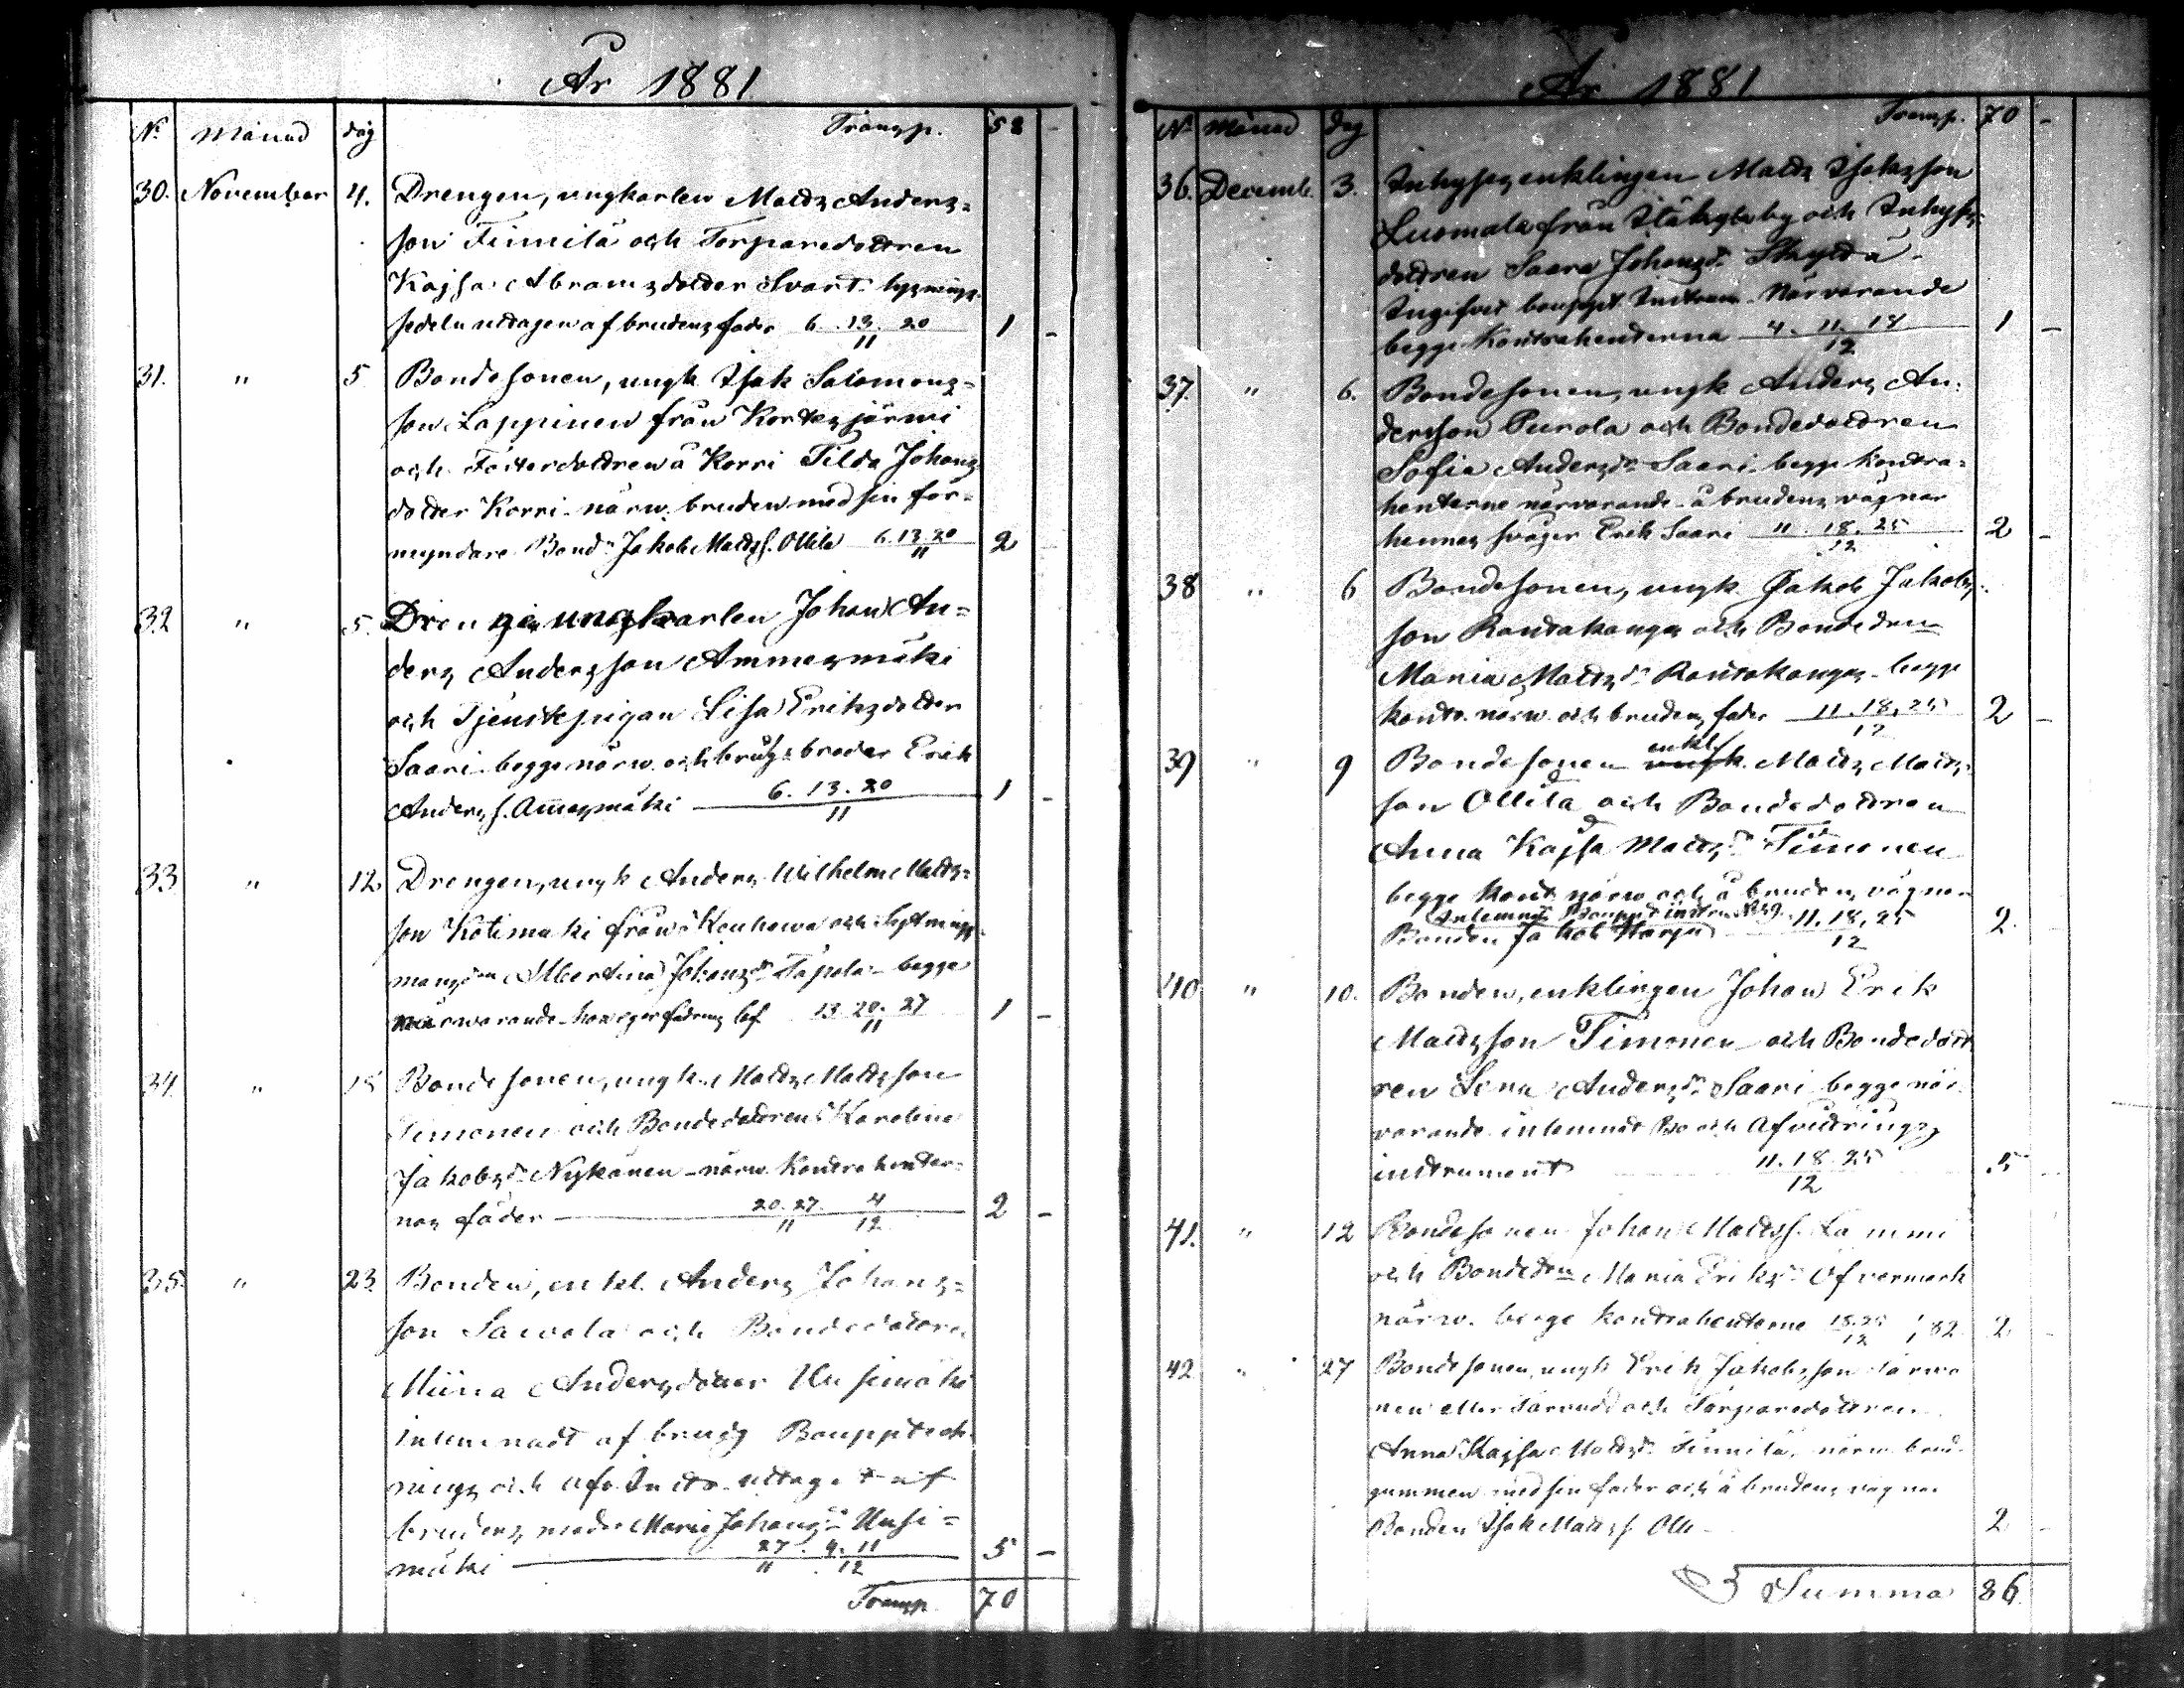 År 1881
No Månad dag Transp. 58 -
30. November 4. Drengen, ungkarlen Matts Anders=
son Finnilä och Torparedottren
Kajsa Abramsdotter Svart. lysnings
sedeln uttagen af brudens fader 6. 13. 20 1 -
11
31. " 5 Bondesonen, ungk. Isak Salomons=
son Lappinen från Kortesjärwi
och Fosterdottren å Korri Tilda Johans
dotter Korri - närw. bruden med sin för=
myndare Bond. Jakob Matts. Ollila 6. 13. 20 2
11
32 " 5. Drengen ungkarlen Johan An=
ders Andersson Ammesmäki
och Tjenstepigan Lisa Eriksdotter
Saari - begge närw. och brudg:s broder Erik
Anders s. Ammesmäki 6. 13. 20 1 -
11
33 " 12 Drengen, ungk Anders Wilhelm Matts=
son Kotimäki från Kauhawa och
Albertina Johansdr Tapola - begge
närwarande 13. 20. 27 1 -
11
34. " 18 Bondesonen, ungk. Matts Mattsson
Timonen och Bondedottren Karolina
Jakobsdr Nykänen - närw. Kontrahenter=
nas fäder 20. 27. 4 2 -
11 12
35. " 23. Bonden, enkl. Anders Johans=
son Sawola och Bondedottren
Miina Andersdotter Uusimäki
inlemnadt af brudg Bouppteck
nings och afv. Instr. uttaget af
brudens moder Maria Johansdr Uusi=
mäki 27. 4. 11 5 -
11 . 12
Transp. 70
År 1881
No Månad dag Transp. 70 -
36. Decemb. 3. Inhyses enklingen Matts Isaksson
Luomala från by och Inhyses
dottren Saara Johansdr
Ingifvit bouppt. Instrum. Närvarande
begge Kontrahenterna 4. 11. 18 1 -
12
37. " 6. Bondesonen, ungk Anders An=
dersson Purola och Bondedottren
Sofia Andersdr Saari - begge kontra=
henterne närvarande - å brudens vägnar
hennes svåger Erik Saari 11. 18. 25 2 -
12
38 " 6 Bondesonen, ungk. Jakob Jakobs
son Rantakangas och Bondedrn
Maria Mattsdr Rantakangas - begge
kontr. närw. och brudens fader 11. 18. 25 2 -
12
39 " 9 Bondesonen enkl. ungk. Matts Matts
son Ollila och Bondedottren
Anna Kajsa Mattsdr Timonen
begge Kont. närw. och å brudens vägnar
Inlemnat Bouppt. instr.
Bonden Jakob Harju 11. 18. 25 2
12
40 " 10. Bonden, enklingen Johan Erik
Mattsson Timonen och Bondedott
ren Lena Andersdr Saari - begge när
varande. inlemnat Bo och Afvittrings
instrument 11. 18. 25 5
12
41. " 12 Bondesonen Johan Mattss. Lammi
och Bondedrn Maria Eriksdr Öfvermark
närw. begge kontrahenterne 18. 25 1/82 2 -
12
42 " 27 Bondesonen, ungk Erik Jakobsson
nen eller och Torparedottren
Anna Kajsa Mattsdr Finnilä, närw. brud
gummen med sin fader och å brudens vägnar
Bonden Isak Matts s. 2 -
Summa 86